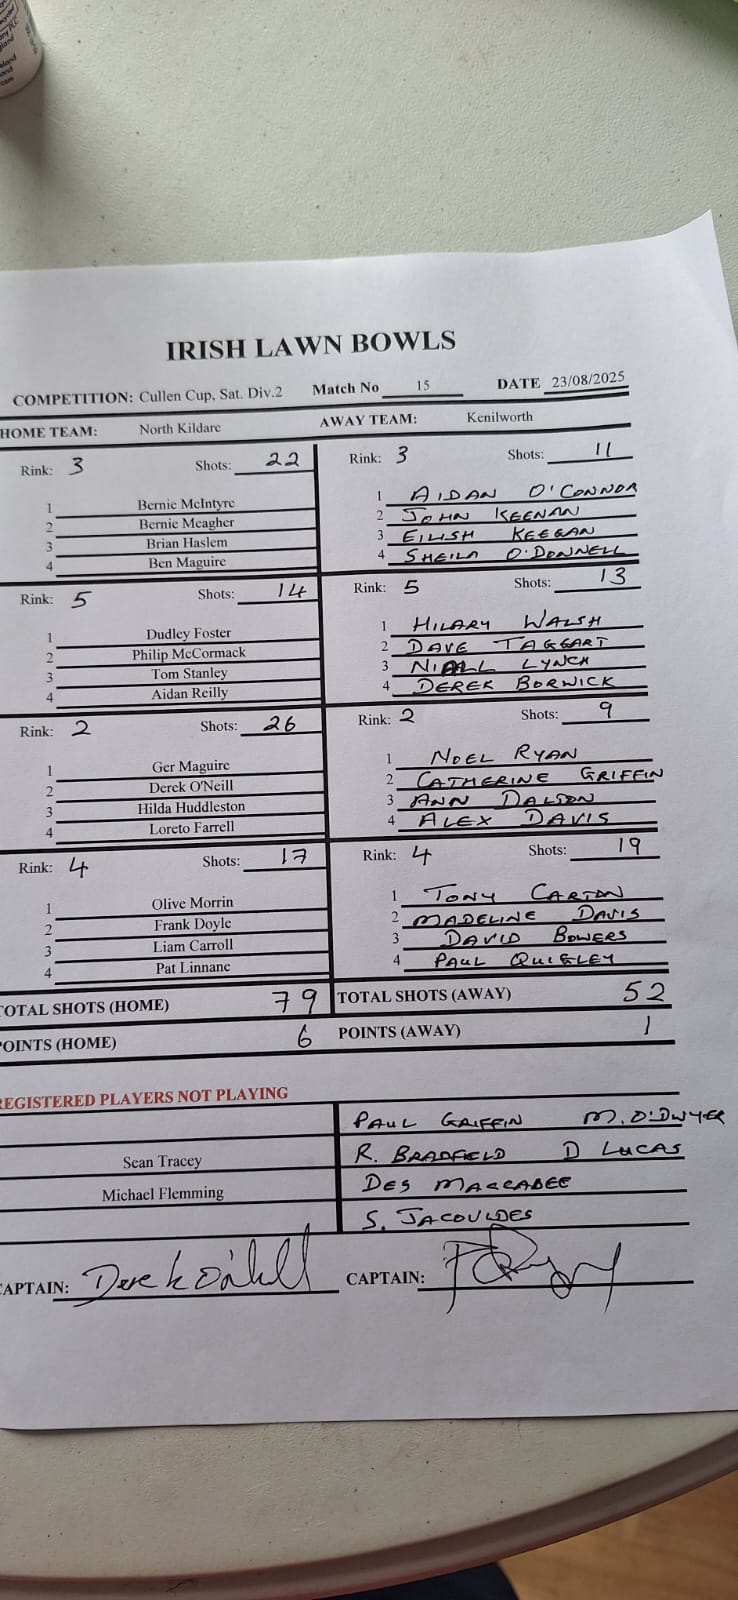 IRISH LAWN BOWLS
COMPETITION: Cullen Cup, Sat. Div.2 Match No 15 DATE 23/08/2025
HOME TEAM: North Kildare AWAY TEAM: Kenilworth
Rink: 3 Shots: 22 Rink: 3 Shots: 11
1 Bernie McIntyre 1 AIDAN O'CONNOR
2 Bernie Meagher 2 JOHN KEENAN
3 Brian Haslem 3 EILISH KEEGAN
4 Ben Maguire 4 SHEILA O'DONNELL
Rink: 5 Shots: 14 Rink: 5 Shots: 13
1 Dudley Foster 1 HILARY WALSH
2 Philip McCormack 2 DAVE TAGGART
3 Tom Stanley 3 NIALL LYNCH
4 Aidan Reilly 4 DEREK BORWICK
Rink: 2 Shots: 26 Rink: 2 Shots: 9
1 Ger Maguire 1 NOEL RYAN
2 Derek O'Neill 2 CATHERINE GRIFFIN
3 Hilda Huddleston 3 ANN DALTON
4 Loreto Farrell 4 ALEX DAVIS
Rink: 4 Shots: 17 Rink: 4 Shots: 19
1 Olive Morrin 1 TONY CARTON
2 Frank Doyle 2 MADELINE DAVIS
3 Liam Carroll 3 DAVID BOWERS
4 Pat Linnane 4 PAUL QUIGLEY
TOTAL SHOTS (HOME) 79 TOTAL SHOTS (AWAY) 52
POINTS (HOME) 6 POINTS (AWAY) 1
REGISTERED PLAYERS NOT PLAYING
PAUL GRIFFIN M. O'DWYER
Sean Tracey R. BRADFIELD D LUCAS
Michael Flemming DES MACCABEE
S. JACOULDES
CAPTAIN: Derek O'Neill CAPTAIN: